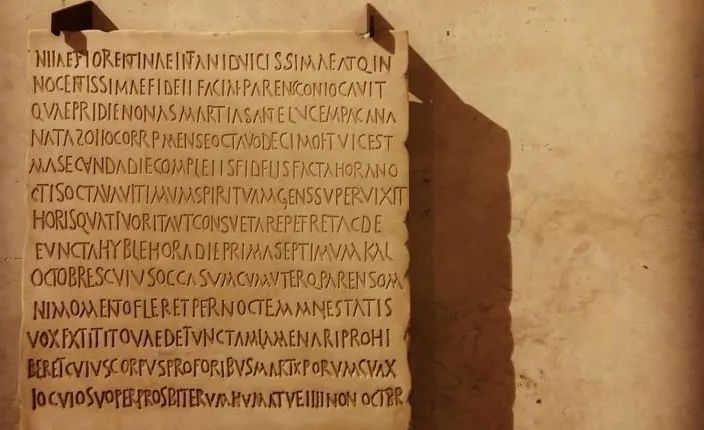 IVLIAE FLORENTINAE INFANTI DVLCISSIMAE ATQ IN
NOCENTISSIMAE FIDELI FACTAE PARENS CONLOCAVIT
QVAE PRIDIE NONAS MARTIAS ANTE LVCEM PACANA
NATA ZOILO CORR P MENSE OCTAVO DECIMO ET VICES
MA SECVNDA DIE COMPLETIS FIDELIS FACTA HORA NO
CTIS OCTAVA VLTIMVM SPIRITVM AGENS SVPERVIXIT
HORIS QVATTVOR ITA VT CONSVETA REPETERET AC DE
FVNCTA HYBLE HORA DIE PRIMA SEPTIMVM KAL
OCTOBRES CVIVS OCCASVM CVM VTERQ PARENS OM
NI MOMENTO FLERET PER NOCTEM MAIESTATIS
VOX EXTITIT QVAE DEFVNCTAM LAMENTARI PROHI
BERET CVIVS CORPVS PRO FORIBVS MARTXPORVM CVM
LOCVLO SVO PER PROSBITERVM HVMATV E IIII NON OCTBR